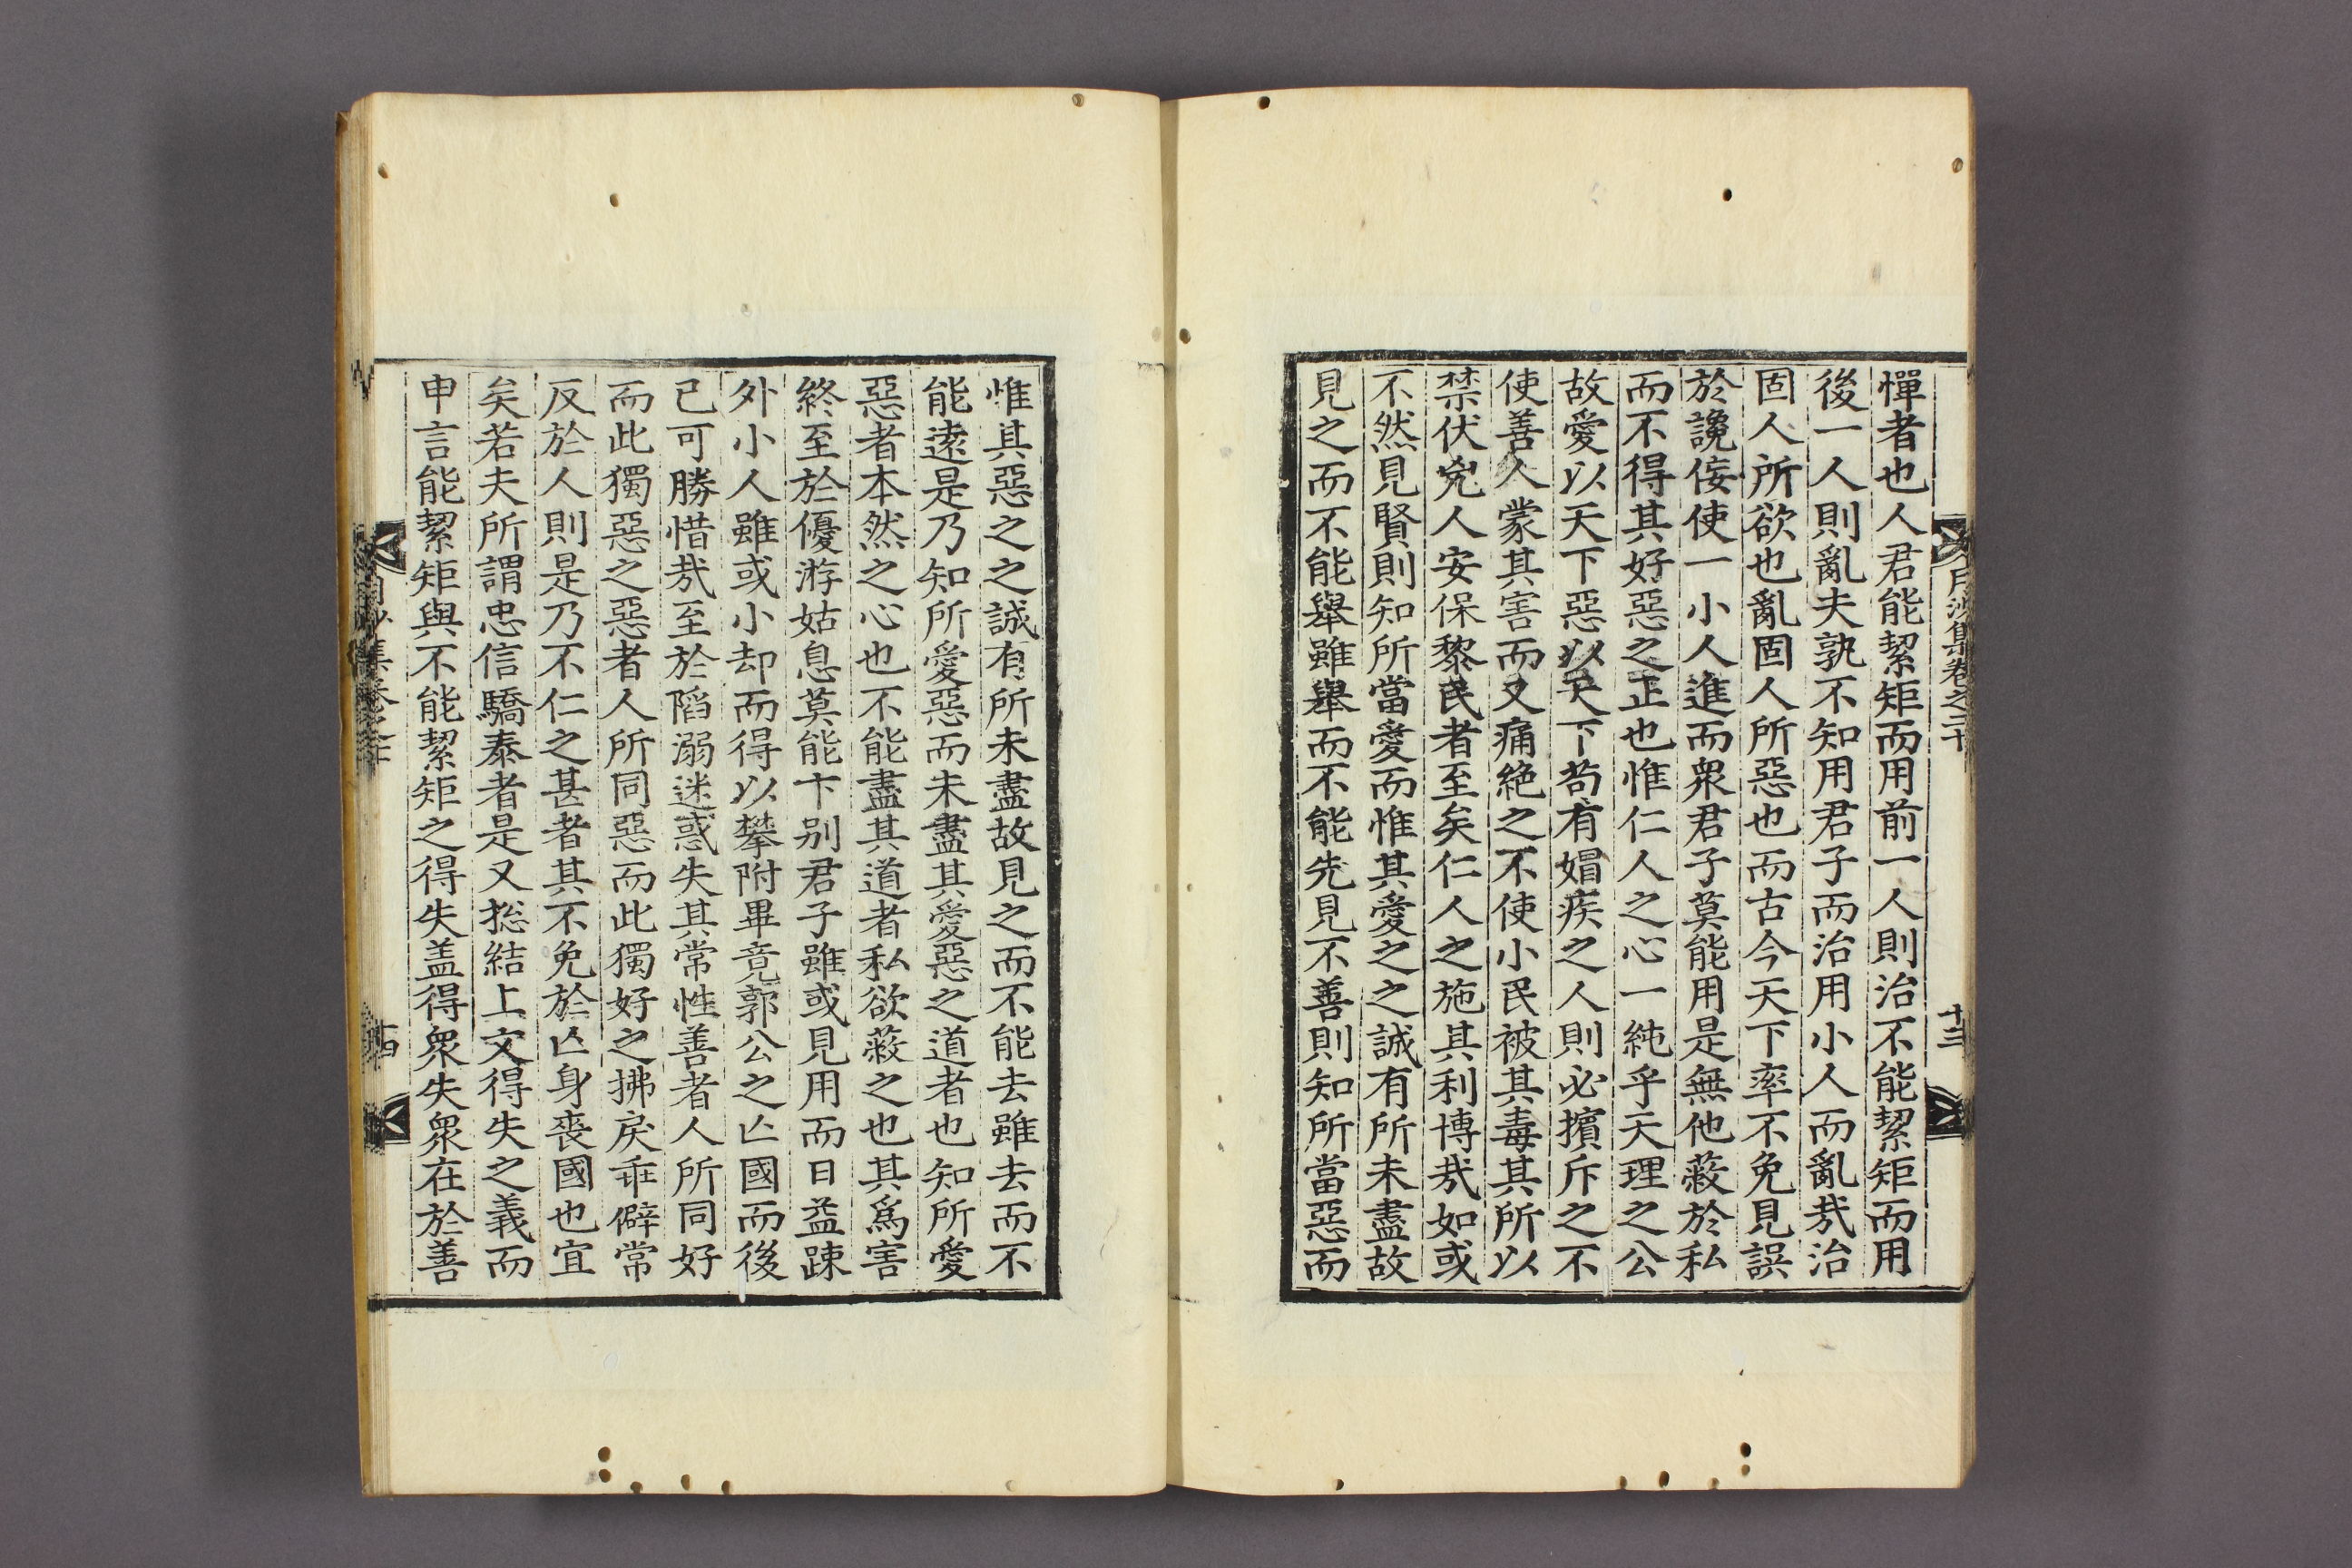 月沙集卷之三十
十三
憚者也人君能絜矩而用前一人則治不能絜矩而用
後一人則亂夫孰不知用君子而治用小人而亂㢤治
固人所欲也亂固人所惡也而古今天下率不免見誤
於讒佞使一小人進而衆君子莫能用是無他蔽於私
而不得其好惡之正也惟仁人之心一純乎天理之公
故愛以天下惡以天下苟有媢疾之人則必擯斥之不
使善人蒙其害而又痛絶之不使小民被其毒其所以
禁伏兇人安保黎民者至矣仁人之施其利博㢤如或
不然見賢則知所當愛而惟其愛之之誠有所未盡故
見之而不能舉雖舉而不能先見不善則知所當惡而
惟其惡之之誠有所未盡故見之而不能去雖去而不
能逺是乃知所愛惡而未盡其愛惡之道者也知所愛
惡者本然之心也不能盡其道者私欲蔽之也其爲害
終至於優游姑息莫能卞别君子雖或見用而日益踈
外小人雖或小却而得以攀附畢竟郭公之亾國而後
已可勝惜㢤至於䧟溺迷惑失其常性善者人所同好
而此獨惡之惡者人所同惡而此獨好之拂戾乖僻常
反於人則是乃不仁之甚者其不免於亾身喪國也宜
矣若夫所謂忠信驕泰者是又捴結上文得失之義而
申言能絜矩與不能絜矩之得失盖得衆失衆在於善
月沙集卷之三十
十四